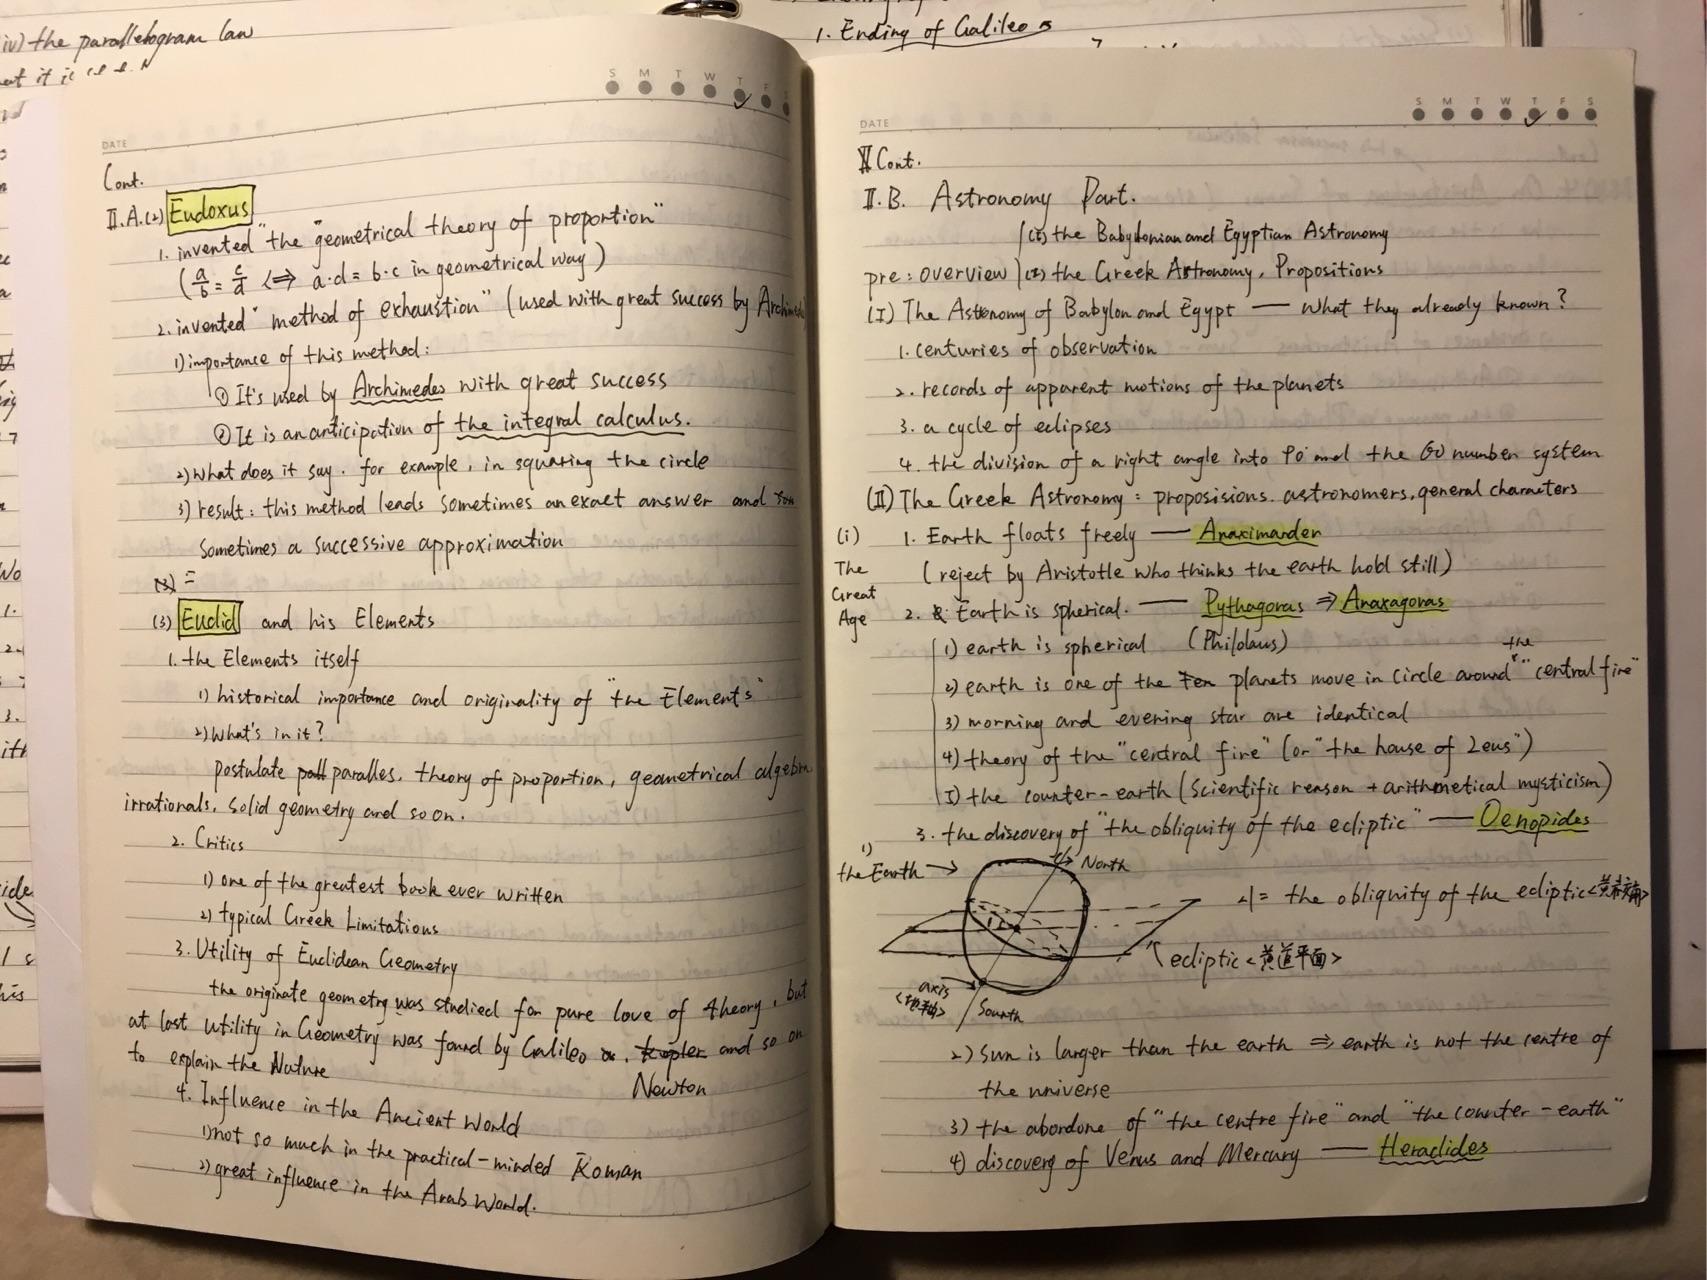 iv) the parallelogram law
1. Ending of Galileo
S M T W T F S
DATE
Cont.
II.A.(2) Eudoxus
1. invented "the geometrical theory of proportion"
(a/b = c/d <=> a·d = b·c in geometrical way)
2. invented "method of exhaustion" (used with great success by Archimedes
1) importance of this method:
① It's used by Archimedes with great success
② It is an anticipation of the integral calculus.
2) What does it say. for example, in squaring the circle
3) result: this method leads sometimes an exact answer and
Sometimes a successive approximation
(3) Euclid and his Elements
1. the Elements itself
1) historical importance and originality of "the Elements"
2) What's in it?
postulate paralles, theory of proportion, geometrical algebra
irrationals, solid geometry and so on.
2. Critics
1) one of the greatest book ever written
2) typical Greek Limitations
3. Utility of Euclidean Geometry
the originate geometry was studied for pure love of theory, but
at last utility in Geometry was found by Galileo, Kepler and so on
Newton
to explain the Nature
4. Influence in the Ancient World
1) not so much in the practical-minded Roman
2) great influence in the Arab World.
S M T W T F S
DATE
Cont.
II.B. Astronomy Part.
(I) the Babylonian and Egyptian Astronomy
pre: overview (II) the Greek Astronomy, Propositions
(I) The Astronomy of Babylon and Egypt — What they already known?
1. centuries of observation
2. records of apparent motions of the planets
3. a cycle of eclipses
4. the division of a right angle into 90 and the 60 number system
(II) The Greek Astronomy: proposisions. astronomers, general characters
(i) The Great Age
1. Earth floats freely — Anaximander
(reject by Aristotle who thinks the earth hold still)
2. Earth is spherical. — Pythagoras ⇒ Anaxagoras
1) earth is spherical (Philolaus)
2) earth is one of the Ten planets move in circle around the "central fire"
3) morning and evening star are identical
4) theory of the "central fire" (or "the house of Zeus")
5) the counter-earth (Scientific reason + arithmetical mysticism)
3. the discovery of "the obliquity of the ecliptic" — Oenopides
1)
the Earth →
North
∠1 = the obliquity of the ecliptic <黄赤交角>
ecliptic <黄道平面>
axis
<地轴>
Sounth
2) Sun is larger than the earth ⇒ earth is not the centre of
the universe
3) the abordone of "the centre fire" and "the counter-earth"
4) discovery of Venus and Mercury — Heraclides